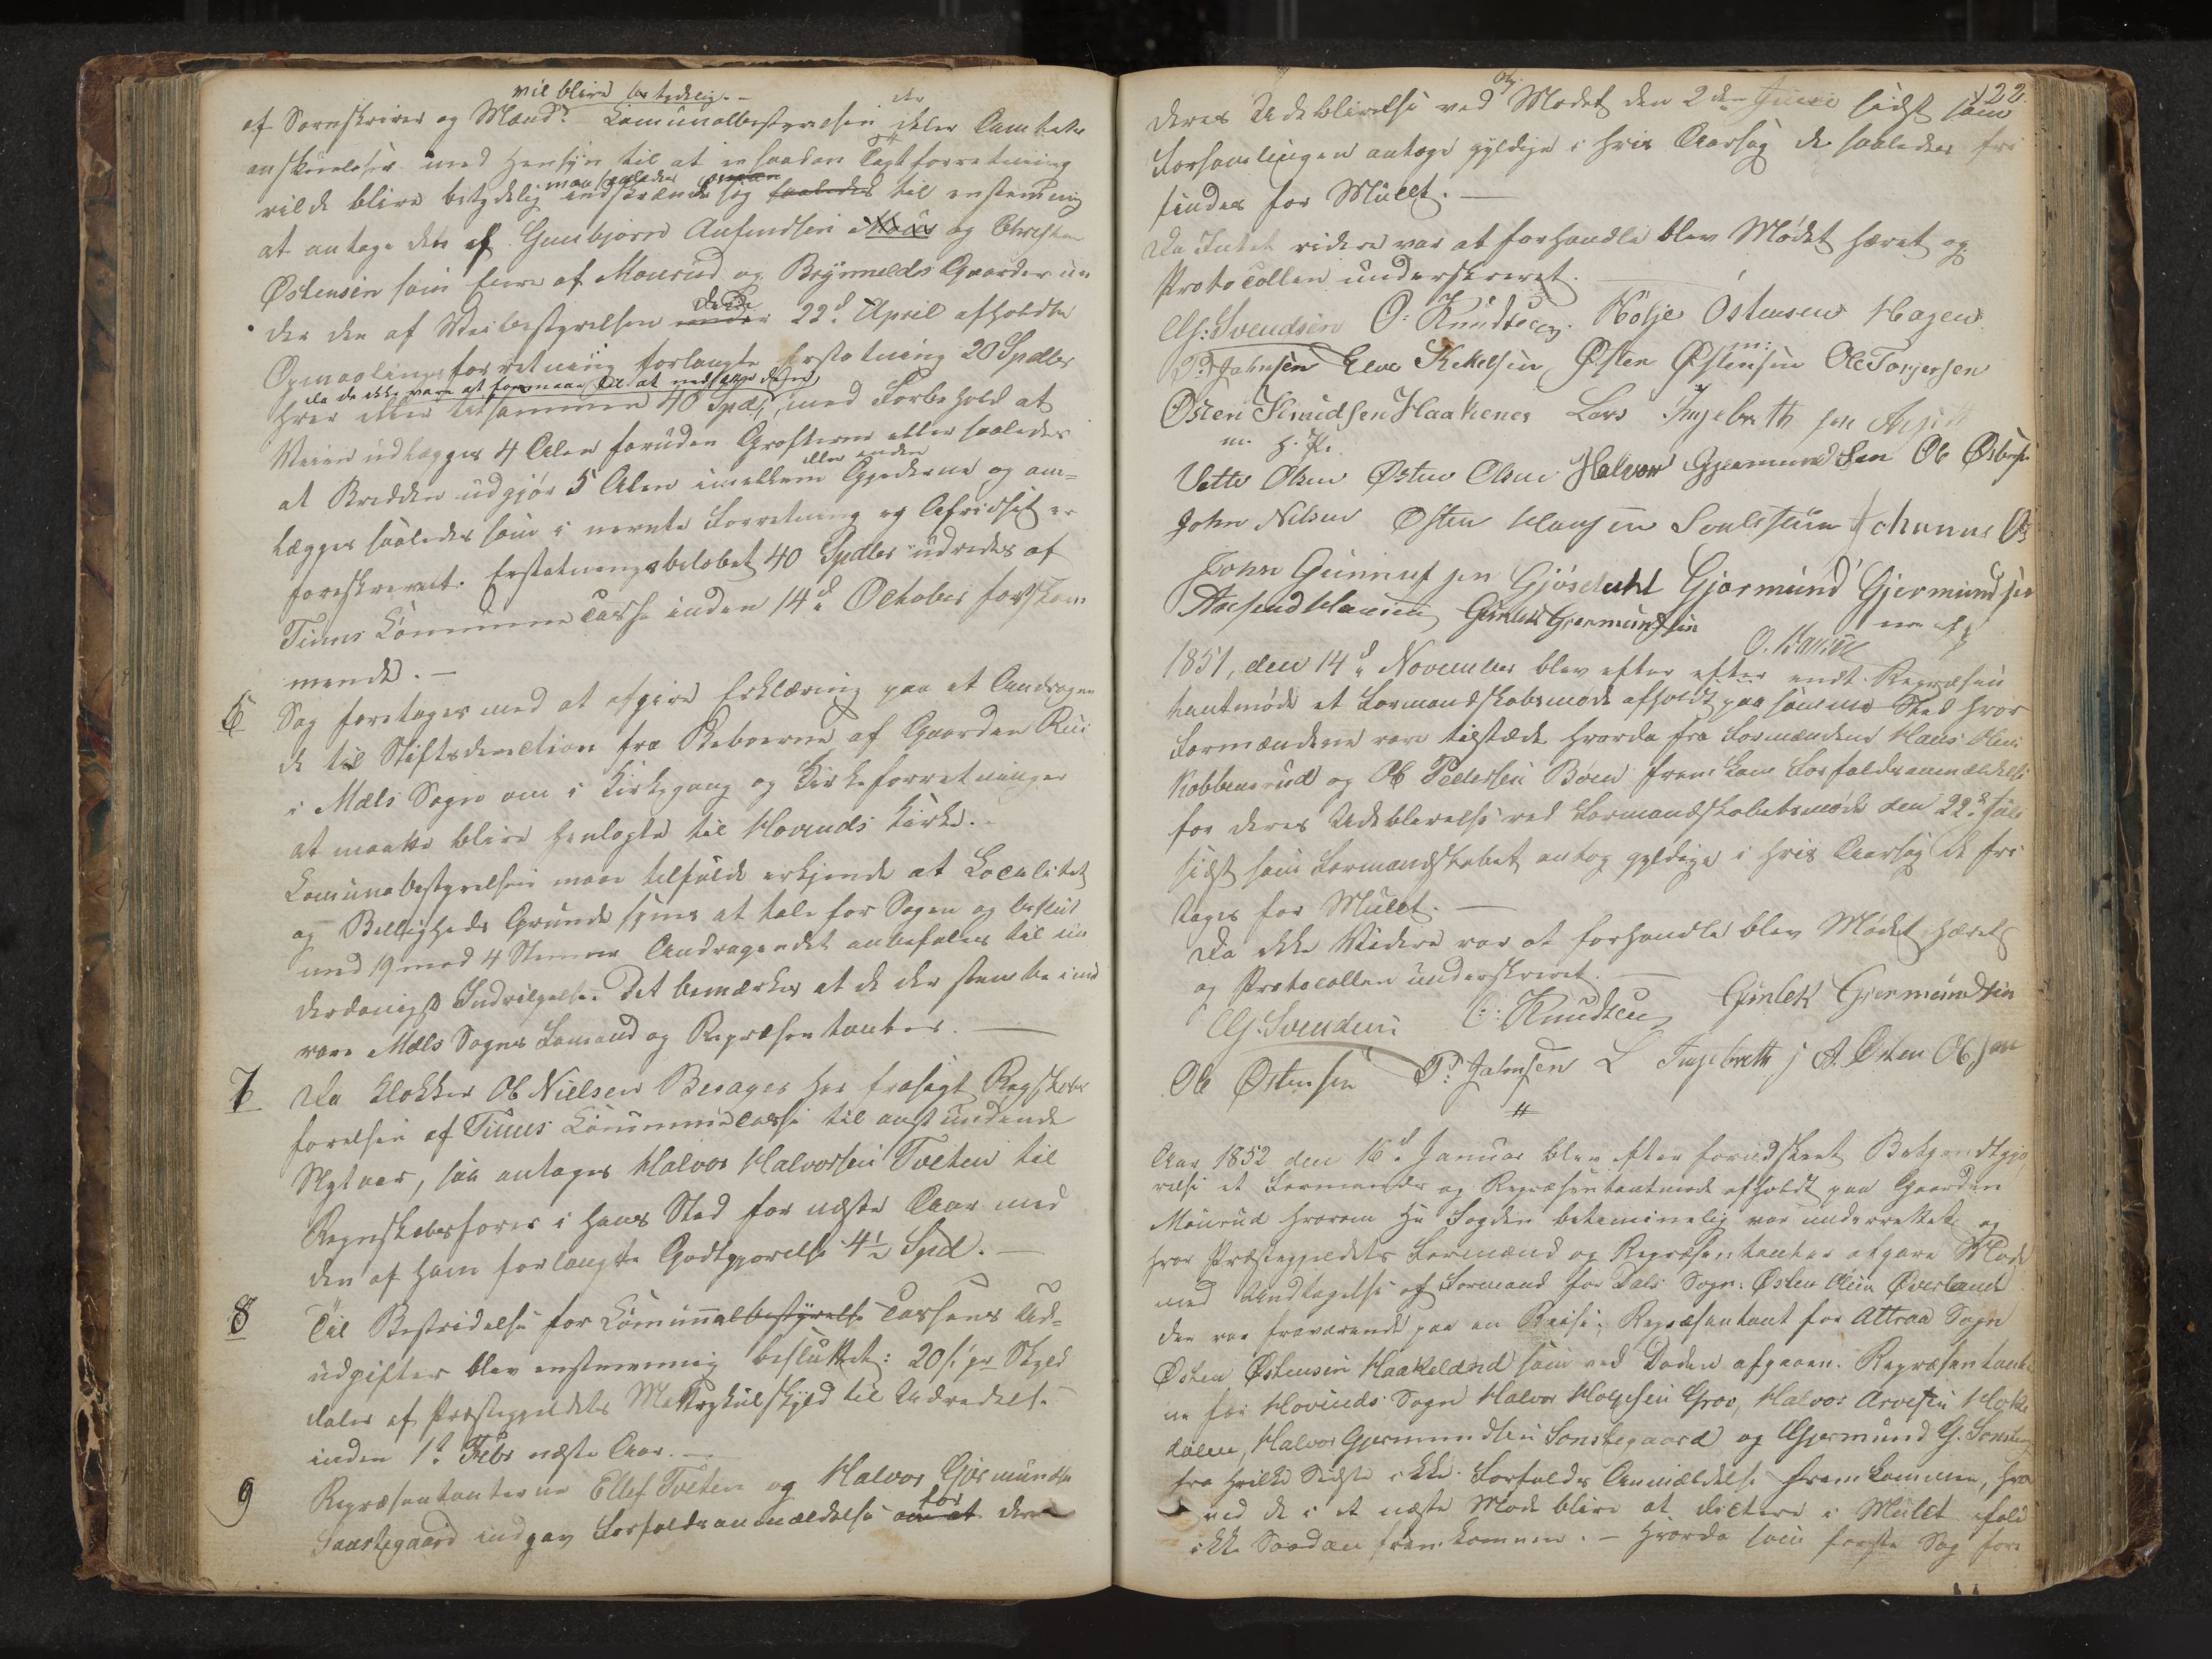 vil blive betydelig. -
af Sorenskriver og Mænd? Communalbestyrelsen deler
anskuelser med Hensyn til at en saadan Taxtforretning
vilde blive betydelig indskrænde sig saaledes til enstemmig
at antage den af Gunbjørn Aufindsen og Christen
Østensen som Eiere af Mourud og Brynnelds Gaarder un
der den af Veibestyrelsen 22d April afholdte
Opmaalingsforretning forlangte Erstatning 20 Spdlr
da de ikke vare at formaae til at nedsætte denne
hver eller tilsammen 40 Spd, med Forbehold at
Veien udlægges 4 Alen foruden Grøfterne eller saaledes
at Bredden udgjør 5 Alen imellem Gjederne og an-
lægges saaledes som i nævnte Forretning og Afridset er
foreskrevet. Erstatningsbeløbet 40 Spdlr udredes af
Tinns Communecasse inden 14d October førstkom
mende. -
6 Sag foretages med at afgive Erklæring paa et Andragen
de til Stiftsdirection fra Beboerne af Gaarden Rui
i Mæls Sogn om i Kirkegang og Kirkeforretninger
at maatte blive henlagte til Hovinds Kirke. -
Communebestyrelsen maae tilfulde erkjende at Localitet
og Billigheds Grunde synes at tale for Sagen og besluttet
med 19 mod 4 Stemmer Andragendet anbefales til un
derdanigst Indvilgelse. Det bemærkes at de der stemte imod
vare Mæls Sogns Formænd og Repræsentanter. -
7 Da Klokker Ole Nielsen Berages har frasagt Regnskabs
førelsen af Tinns Communecasse til anstundende
Nytaar, saa antages Halvor Halvorsen Tveten til
Regnskabsfører i hans Sted for næste Aar med
den af ham forlangte Godtgjørelse 4½ Spd. -
8 Til Bestridelse for Communalbestyrelse Cassens Ud-
udgifter blev enstemmig besluttet: 20 s. pr Skyld
daler af Præstegjeldets Matrykulskyld til Udredelse
inden 1ste Febr næste Aar. -
9 Repræsentanterne Ellef Tveten og Halvor Gjermundsen
Sønstegaard indgav Forfaldsanmældelse for deres
122
deres Udeblivelse ved Mødet den 2den Junii sidst som
Forsamlingen antoge gyldige i hvis Aarsag de saaledes fri
findes for Mulct. -
Da Intet videre var at forhandle blev Mødet hævet og
Protocollen underskrevet.
Svendsen O: Knudsen. Kolje Østensen Hagen
P. Johnsen Elev Kittelsen Østen Østensen Ole Torjersen
Østen Knudsen Haakenes Lars Ingebreth sen
m. h. P.
Vetle Olsen Østen Olsen Halvor Gjermundsen Ole
John Nilsen Østen Hansen
John Gunnuf sen Gjøsdahl Gjermund Gjermundsen
Aasmund Hansen Gunlek Gjermundsen
O. Hansen
1851, den 14d November blev efter efter endt Repræsen
tantmøde et Formandskabsmøde afholdt paa samme Sted hvor
Formændene vare tilstæde hvorda fra Formændene Hans Olsen
Kobbenrud og Ole Pedersen Bøen fremkom Forfaldsanmældelse
for deres Udeblivelse ved Formandskabetsmøde den 22d Juli
sidst som Formandskabet antog gyldige i hvis Aarsag de fri
tages for Mulct. -
Da ikke Videre var at forhandle blev Mødet hævet
og Protocollen underskrevet. -
Svendsen O: Knudsen Gunlek Gjermundsen
Ole Østensen P. Johnsen L Ingebreth A. Østen Olsen
#
Aar 1852 den 16d Januar blev efter forudskeet Bekjendtgjø
relse et Formænds og Repræsentantmøde afholdt paa Gaarden
Mourud hvorom Hr Fogden betimmelig var underrettet og
hvor Præstegjeldets Formænd og Repræsentanter afgave Møde
med Undtagelse af Formand for Dals Sogn: Østen Olsen Øverland
der var fraværende paa en Reise; Repræsentant for Attraa Sogn
Østen Østensen Haakeland som ved Døden afgaaen. Repræsentante
ne for Hovinds Sogn Halvor Holjesen Grov, Halvor Arvesen
dalen, Halvor Gjermundsen Sønstegaard og Gjermund G. Sønsteg
fra hvilke Sidste ikke Forfalds Anmældelse fremkommen, hvor
ved de i et næste Møde blive at dictere i Mulct ifald
ikke Saadan fremkommer. - Hvorda som første Sag fore